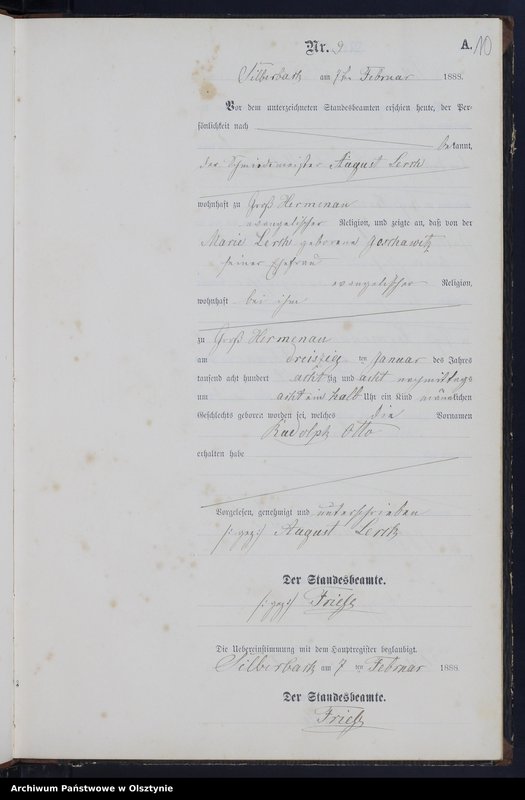 Nr. 9
A. 10
Silberbach am 7ten Februar 1888.
Vor dem unterzeichneten Standesbeamten erschien heute, der Per-
sönlichkeit nach
bekannt,
der Schmiedemeister August Lerch
wohnhaft zu Groß Hermenau
evangelischer Religion, und zeigte an, daß von der
Marie Lerch geborene Joschawitz
seiner Ehefrau
evangelischer Religion,
wohnhaft bei ihm
zu Groß Hermenau
am dreißig ten Januar des Jahres
tausend acht hundert acht zig und acht nachmittags
um acht ein halb Uhr ein Kind männlichen
Geschlechts geboren worden sei, welches die Vornamen
Rudolph Otto
erhalten habe
Vorgelesen, genehmigt und unterschrieben
/: gez:/ August Lerch
Der Standesbeamte.
/: gez:/ Friese
Die Uebereinstimmung mit dem Hauptregister beglaubigt.
Silberbach am 7 ten Februar 1888.
Der Standesbeamte.
Friese
Archiwum Państwowe w Olsztynie